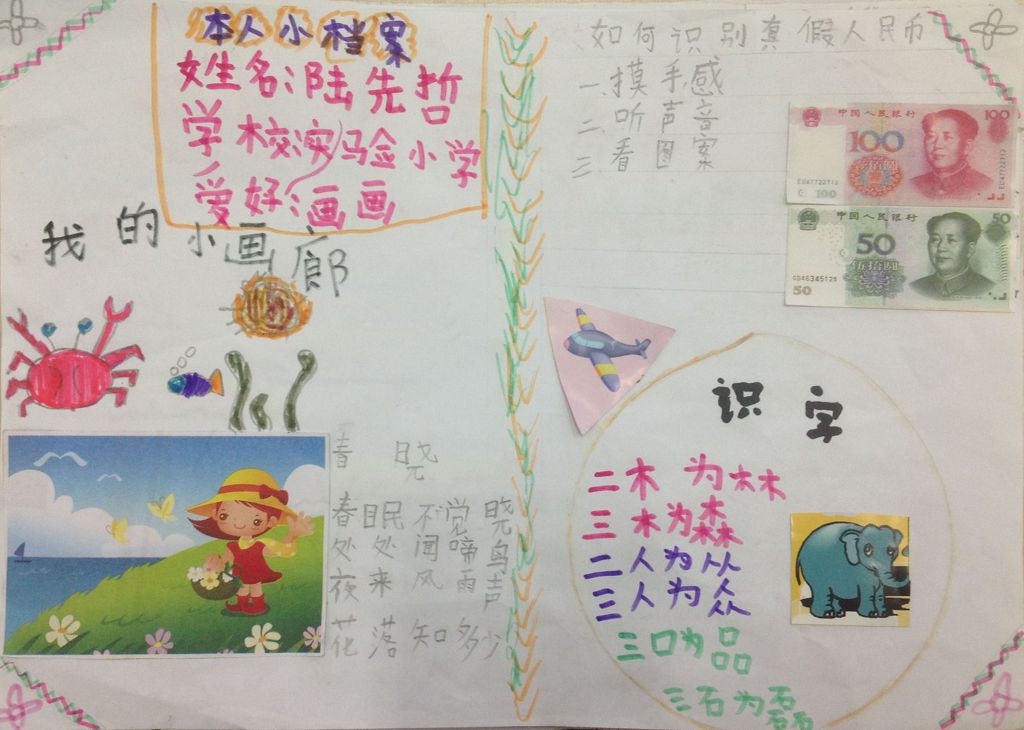 本人小档案
姓名:陆先哲
学校:实验小学
爱好:画画
我的小画廊
春 晓
春眠不觉晓
处处闻啼鸟
夜来风雨声
花落知多少
如何识别真假人民币
一、摸手感
二、听声音
三、看图案
中国人民银行
100
100
佰圆
EU47722713
100
中国人民银行
50
50
伍拾圆
50
识字
二木为林
三木为森
二人为从
三人为众
三口为品
三石为磊